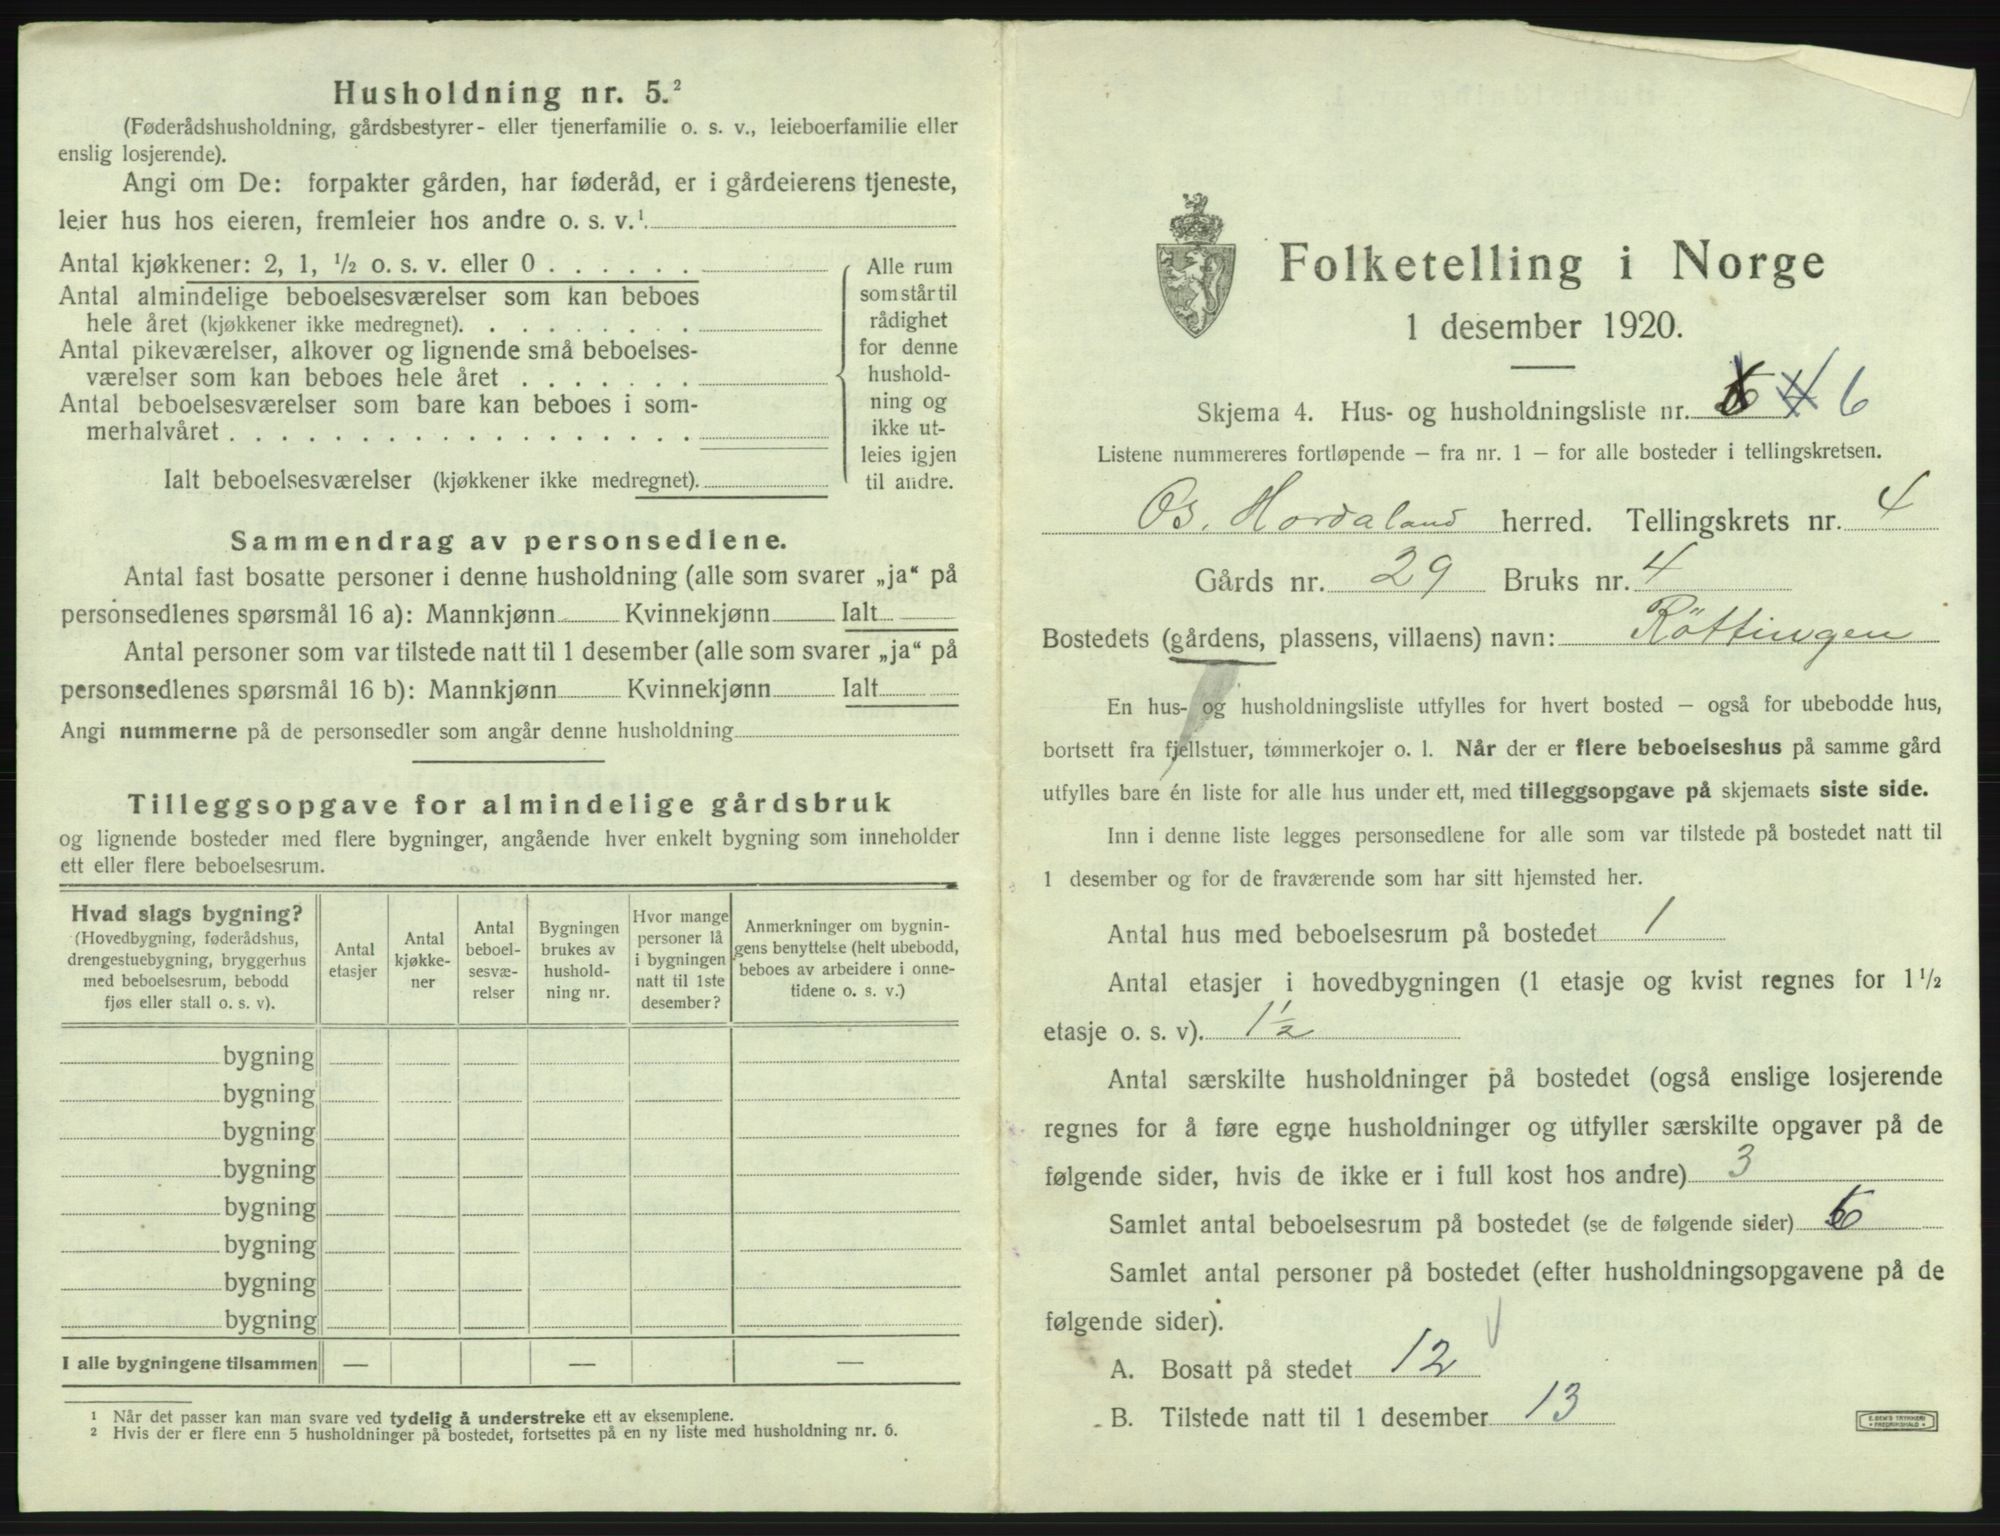 Husholdning nr. 5.²
(Føderådshusholdning, gårdsbestyrer- eller tjenerfamilie o. s. v., leieboerfamilie eller
enslig losjerende).
Angi om De: forpakter gården, har føderåd, er i gårdeierens tjeneste,
leier hus hos eieren, fremleier hos andre o. s. v.¹
Antal kjøkkener: 2, 1, ½ o. s. v. eller 0 . . . . . .
Antal almindelige beboelsesværelser som kan beboes
hele året (kjøkkener ikke medregnet). . . . . . . . .
Antal pikeværelser, alkover og lignende små beboelses-
værelser som kan beboes hele året . . . . . . .
Antal beboelsesværelser som bare kan beboes i som-
merhalvåret . . . . . . . . . . . . . . . . . .
Ialt beboelsesværelser (kjøkkener ikke medregnet).
Alle rum
som står til
rådighet
for denne
hushold-
ning og
ikke ut-
leies igjen
til andre.
Sammendrag av personsedlene.
Antal fast bosatte personer i denne husholdning (alle som svarer „ja“ på
personsedlenes spørsmål 16 a): Mannkjønn Kvinnekjønn Ialt
Antal personer som var tilstede natt til 1 desember (alle som svarer „ja“ på
personsedlenes spørsmål 16 b): Mannkjønn Kvinnekjønn Ialt
Angi nummerne på de personsedler som angår denne husholdning
Tilleggsopgave for almindelige gårdsbruk
og lignende bosteder med flere bygninger, angående hver enkelt bygning som inneholder
ett eller flere beboelsesrum.
Hvad slags bygning?
(Hovedbygning, føderådshus,
drengestuebygning, bryggerhus
med beboelsesrum, bebodd
fjøs eller stall o. s. v).
Antal
etasjer
Antal
kjøkke-
ner
Antal
beboel-
sesvæ-
relser
Bygningen
brukes av
hushold-
ning nr.
Hvor mange
personer lå
i bygningen
natt til 1ste
desember?
Anmerkninger om bygnin-
gens benyttelse (helt ubebodd,
beboes av arbeidere i onne-
tidene o. s. v.)
bygning
bygning
bygning
bygning
bygning
bygning
bygning
bygning
I alle bygningene tilsammen — — —
¹ Når det passer kan man svare ved tydelig å understreke ett av eksemplene.
² Hvis der er flere enn 5 husholdninger på bostedet, fortsettes på en ny liste med husholdning nr. 6.
Folketelling i Norge
1 desember 1920.
Skjema 4. Hus- og husholdningsliste nr. 6
Listene nummereres fortløpende — fra nr. 1 — for alle bosteder i tellingskretsen.
Os, Hordaland herred. Tellingskrets nr. 4
Gårds nr. 29 Bruks nr. 4
Bostedets (gårdens, plassens, villaens) navn: Röttingen
En hus- og husholdningsliste utfylles for hvert bosted — også for ubebodde hus,
bortsett fra fjellstuer, tømmerkojer o. l. Når der er flere beboelseshus på samme gård
utfylles bare én liste for alle hus under ett, med tilleggsopgave på skjemaets siste side.
Inn i denne liste legges personsedlene for alle som var tilstede på bostedet natt til
1 desember og for de fraværende som har sitt hjemsted her.
Antal hus med beboelsesrum på bostedet 1
Antal etasjer i hovedbygningen (1 etasje og kvist regnes for 1 ½
etasje o. s. v). 1½
Antal særskilte husholdninger på bostedet (også enslige losjerende
regnes for å føre egne husholdninger og utfyller særskilte opgaver på de
følgende sider, hvis de ikke er i full kost hos andre) 3
Samlet antal beboelsesrum på bostedet (se de følgende sider)
Samlet antal personer på bostedet (efter husholdningsopgavene på de
følgende sider).
A. Bosatt på stedet 12
B. Tilstede natt til 1 desember 13
E. SEM'S TRYKKERI
FREDRIKSHALD